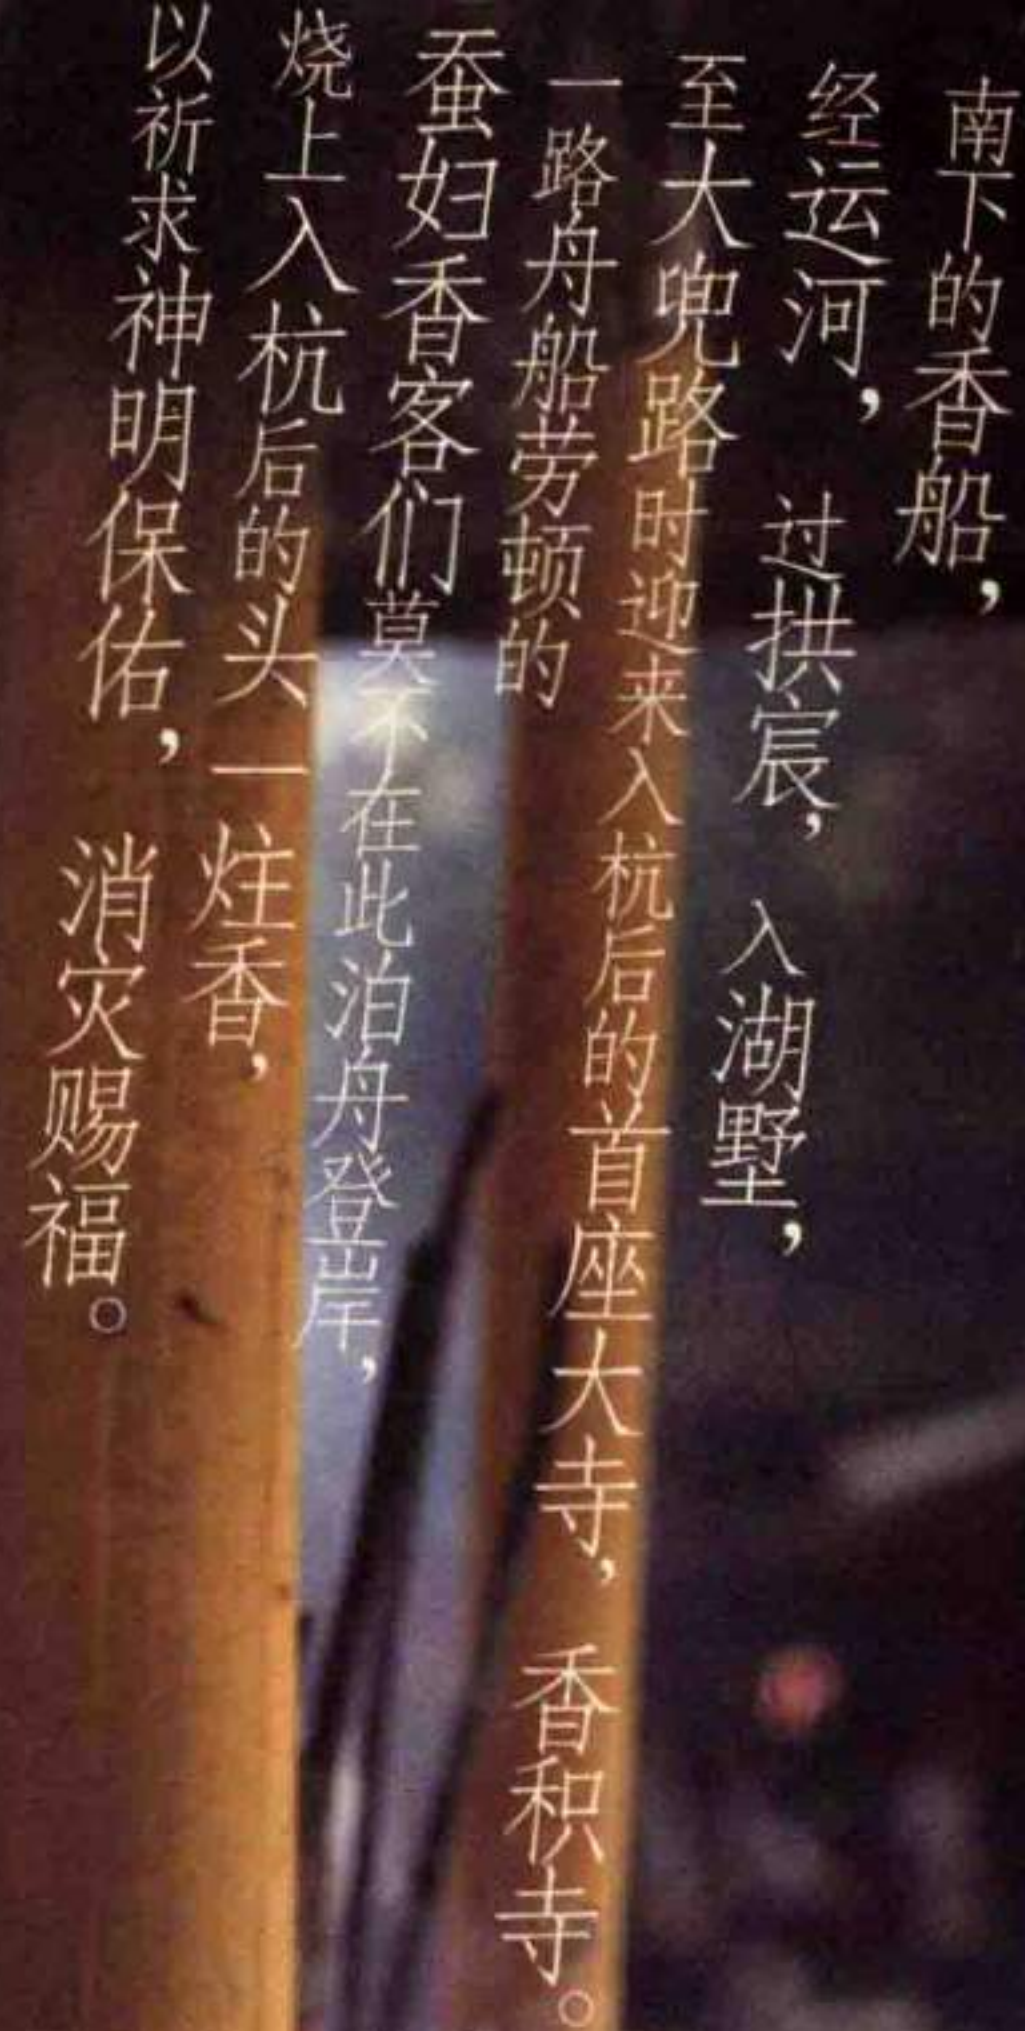 南下的香船，
经运河， 过拱宸， 入湖墅，
至大兜路时迎来入杭后的首座大寺， 香积寺。
一路舟船劳顿的
蚕妇香客们莫不在此泊舟登岸，
烧上入杭后的头一炷香，
以祈求神明保佑， 消灾赐福。